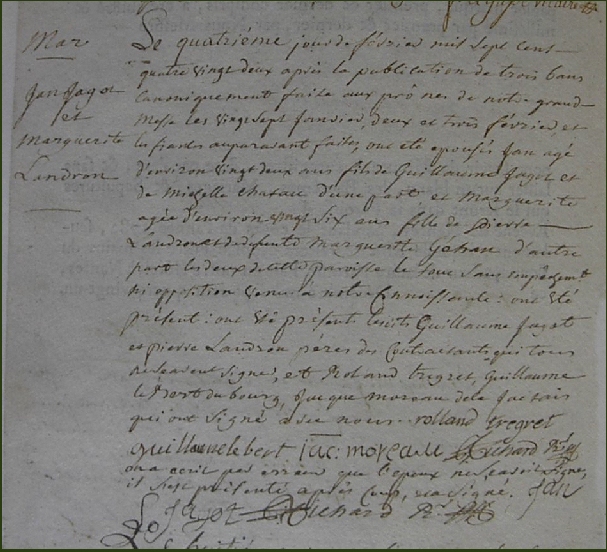 Mar
Jan Jagot
et
Marguerite
Landron
Le quatriéme jour de février mil sept cens
quatre vingt deux après la publication de trois bans
canoniquement faite aux prônes de notre grand
Messe les vingt sept janvier, deux et trois février et
les fiancés auparavant faites, ont été epousés Jan agé
d'environ vingt deux ans fils de Guillaume Jagot et
de Michelle d'une part et Marguerite
agée d'environ vingt six ans fille de pierre
Landron et de defunte Marguerite Gehan d'autre
part les deux de cette paroisse le tout sans empêchement
ni opposition venue à notre connoissance : ont été
présent : ont été présent lesdits Guillaume Jagot
et pierre Landron péres des contractants qui tous
ne savent signer, et Roland tregret, Guillaume
le Bert du bourg, Jacque moreau de la
qui ont signé avec nous. rolland tregret
guillaume lebert jac: moreau Richard Rr
on a ecrit par erreur que l'epoux ne savoit signer,
il s'est présenté après coup, et a signé. Jan
Jagot Richard Rr
Le huitié